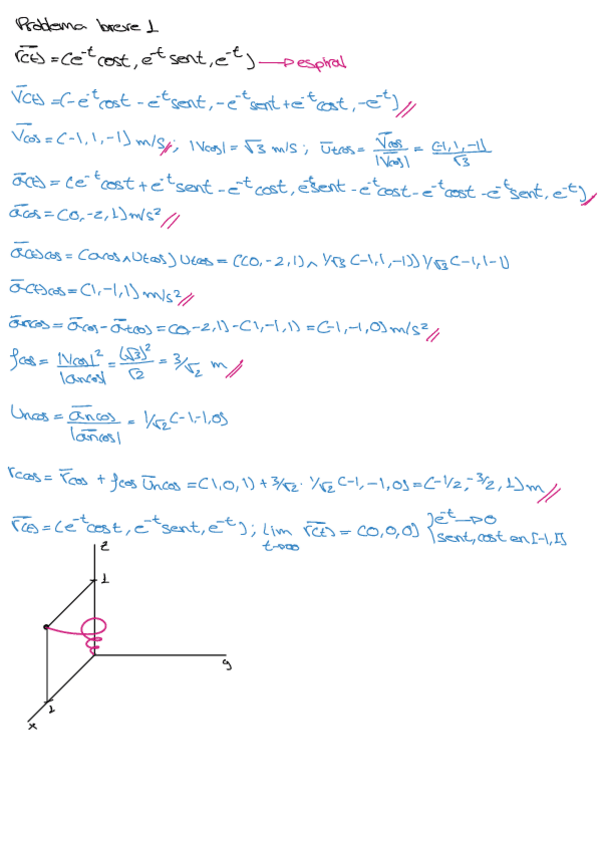 Problema breve 1
r̄(t) = (e^-t cost, e^-t sent, e^-t) → espiral
V̄(t) = (-e^-t cost - e^-t sent, -e^-t sent + e^-t cost, -e^-t)
V̄(0) = (-1, 1, -1) m/s; |V(0)| = √3 m/s; Ūt(0) = V̄(0)/|V̄(0)| = (-1, 1, -1)/√3
ā(t) = (e^-t cost + e^-t sent + e^-t sent - e^-t cost, e^-t sent - e^-t cost - e^-t cost - e^-t sent, e^-t)
ā(0) = (0, -2, 1) m/s²
ā(t)(0) = (a(0) ∧ Ut(0)) Ut(0) = ((0, -2, 1) ∧ 1/√3 (-1, 1, -1)) 1/√3 (-1, 1 -1)
ā(t)(0) = (1, -1, 1) m/s²
ān(0) = ā(0) - āt(0) = (0 -2, 1) - (1, -1, 1) = (-1, -1, 0) m/s²
ρ(0) = |V(0)|²/|an(0)| = (√3)²/√2 = 3/√2 m
Un(0) = ān(0)/|ān(0)| = 1/√2 (-1, -1, 0)
rc(0) = r̄(0) + ρ(0) Ūn(0) = (1, 0, 1) + 3/√2 · 1/√2 (-1, -1, 0) = (-1/2, -3/2, 1) m
r̄(t) = (e^-t cost, e^-t sent, e^-t); lim t→∞ r̄(t) = (0, 0, 0) } e^-t → 0
sent, cost en [-1, 1]
z
1
y
1
x